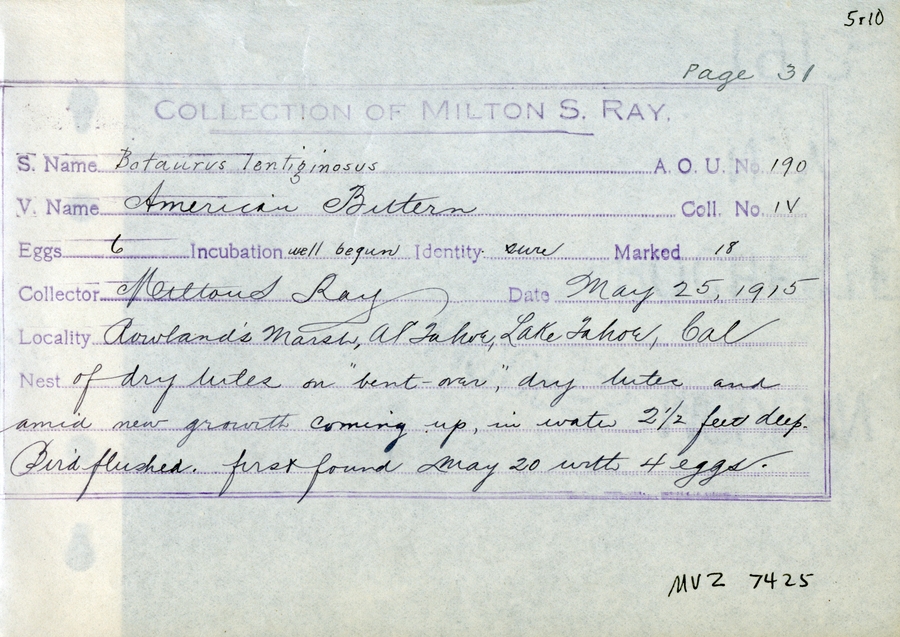 5r10
Page 31
COLLECTION OF MILTON S. RAY.
S. Name Botaurus lentiginosus A. O. U. No. 190
V. Name American Bittern Coll. No. 14
Eggs 6 Incubation well begun Identity sure Marked 18
Collector Milton S Ray Date May 25, 1915
Locality Rowland's Marsh, Al Tahoe, Lake Tahoe, Cal
Nest of dry tules on "bent-over", dry tules and
amid new growth coming up, in water 2 1/2 feet deep.
Bird flushed. first found May 20 with 4 eggs.
MVZ 7425